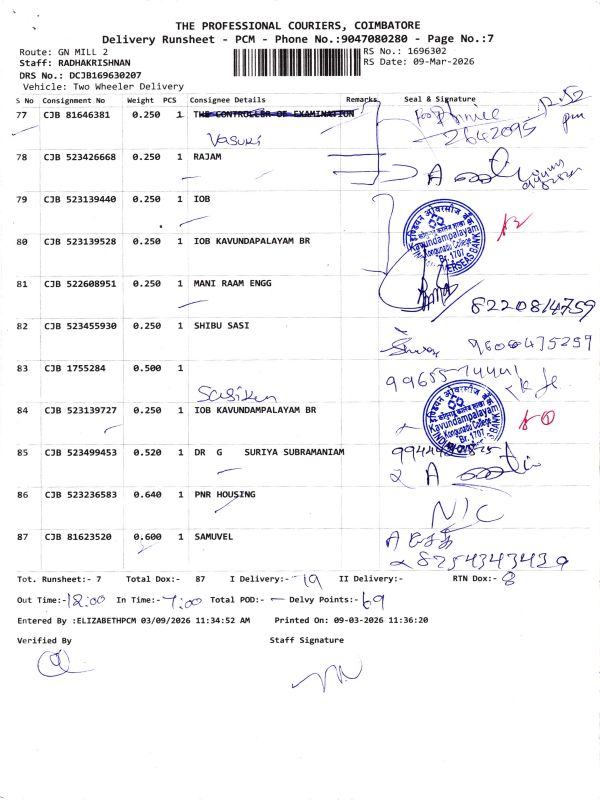 THE PROFESSIONAL COURIERS, COIMBATORE
Delivery Runsheet - PCM - Phone No.:9047080280 - Page No.:7
Route: GN MILL 2
RS No.: 1696302
Staff: RADHAKRISHNAN
RS Date: 09-Mar-2026
DRS No.: DCJB169630207
Vehicle: Two Wheeler Delivery
S No Consignment No Weight PCS Consignee Details Remarks Seal & Signature
12.52 pm
77 CJB 81646381 0.250 1 THE CONTROLLER OF EXAMINATION
2642095
Vasuki
78 CJB 523426668 0.250 1 RAJAM
79 CJB 523139440 0.250 1 IOB
80 CJB 523139528 0.250 1 IOB KAVUNDAPALAYAM BR
इण्डियन ओवरसीज बैंक
Kavundampalayam
Kongunadu College
Br. 1707
81 CJB 522608951 0.250 1 MANI RAAM ENGG
8220814759
82 CJB 523455930 0.250 1 SHIBU SASI
9600475259
83 CJB 1755284 0.500 1
99655-74441
Sasikan
84 CJB 523139727 0.250 1 IOB KAVUNDAMPALAYAM BR
इण्डियन ओवरसीज बैंक
Kavundampalayam
Kongunadu College
Br. 1707
85 CJB 523499453 0.520 1 DR G SURIYA SUBRAMANIAM
86 CJB 523236583 0.640 1 PNR HOUSING
N/C
87 CJB 81623520 0.600 1 SAMUVEL
8254343439
Tot. Runsheet:- 7 Total Dox:- 87 I Delivery:- 79 II Delivery:- RTN Dox:- 8
Out Time:- 12:00 In Time:- 7:00 Total POD:- — Delvy Points:- 69
Entered By :ELIZABETHPCM 03/09/2026 11:34:52 AM Printed On: 09-03-2026 11:36:20
Verified By Staff Signature